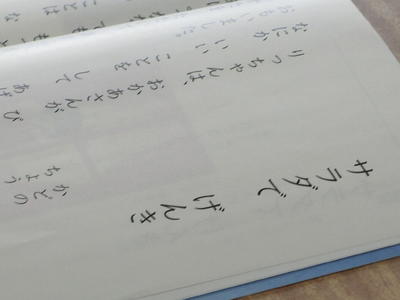 サラダで げんき
かどの
ちょう
りっちゃんは、おかあさんが び
なにか いい ことを して あげ
おもいました。